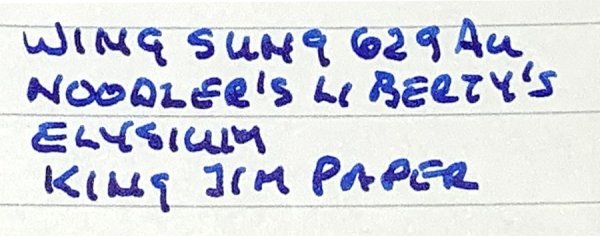 WING SUNG 629 Au
NOODLER'S LIBERTY'S
ELYSIUM
KING JIM PAPER